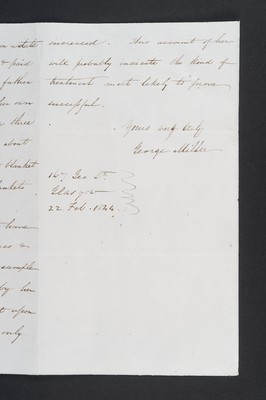 n estate
& paid
father
her own
three
about
blanket
blankets
have
example
by her
t upon
only
increased. An account of her
will probably indicate the kind of
treatment most likely to prove
successful.
Yours very truly
George Miller
167 Geo St.
Glasgow
22 Feb. 1844.